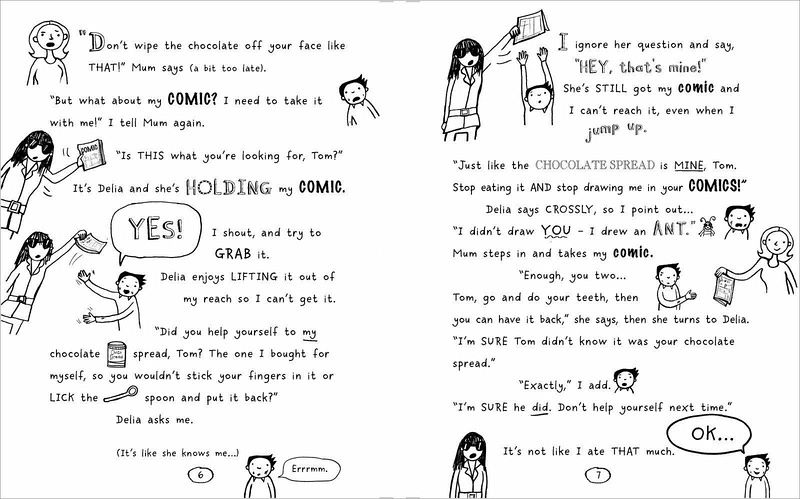 "Don't wipe the chocolate off your face like
THAT!" Mum says (a bit too late).
"But what about my COMIC? I need to take it
with me!" I tell Mum again.
COMIC
"Is THIS what you're looking for, Tom?"
It's Delia and she's HOLDING my COMIC.
YES!
I shout, and try to
GRAB it.
Delia enjoys LIFTING it out of
my reach so I can't get it.
"Did you help yourself to my
chocolate spread, Tom? The one I bought for
myself, so you wouldn't stick your fingers in it or
LICK the spoon and put it back?"
Delia asks me.
(It's like she knows me...)
Errrmm.
6
I ignore her question and say,
"HEY, that's mine!"
She's STILL got my comic and
I can't reach it, even when I
jump up.
"Just like the CHOCOLATE SPREAD is MINE, Tom.
Stop eating it AND stop drawing me in your COMICS!"
Delia says CROSSLY, so I point out...
"I didn't draw YOU - I drew an ANT."
Mum steps in and takes my comic.
"Enough, you two...
Tom, go and do your teeth, then
you can have it back," she says, then she turns to Delia.
"I'm SURE Tom didn't know it was your chocolate
spread."
"Exactly," I add.
"I'm SURE he did. Don't help yourself next time."
OK...
It's not like I ate THAT much.
7